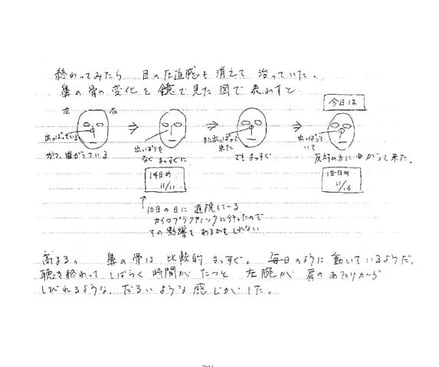 終わってみたら 目の圧迫感も消えて 治っていた。
鼻の骨の変化を鏡で見た図で表わすと
今日は
左 右
出っぱっている
かつ、曲がっている
出っぱりも
なく まっすぐに
また出っぱって
来た
でも まっすぐ
出っぱって
いて
反対の方に曲がって来た。
14日め
11/11
18日め
11/16
10日の日に 通院している
カイロプラクティックに行ったので
その影響もあるかもしれない
高まる。 鼻の骨は 比較的 まっすぐ。 毎日のように 動いているようだ。
聴き終わって しばらく 時間が たつと 左腕が 肩のあたりから
しびれるような、だるいような 感じがした。